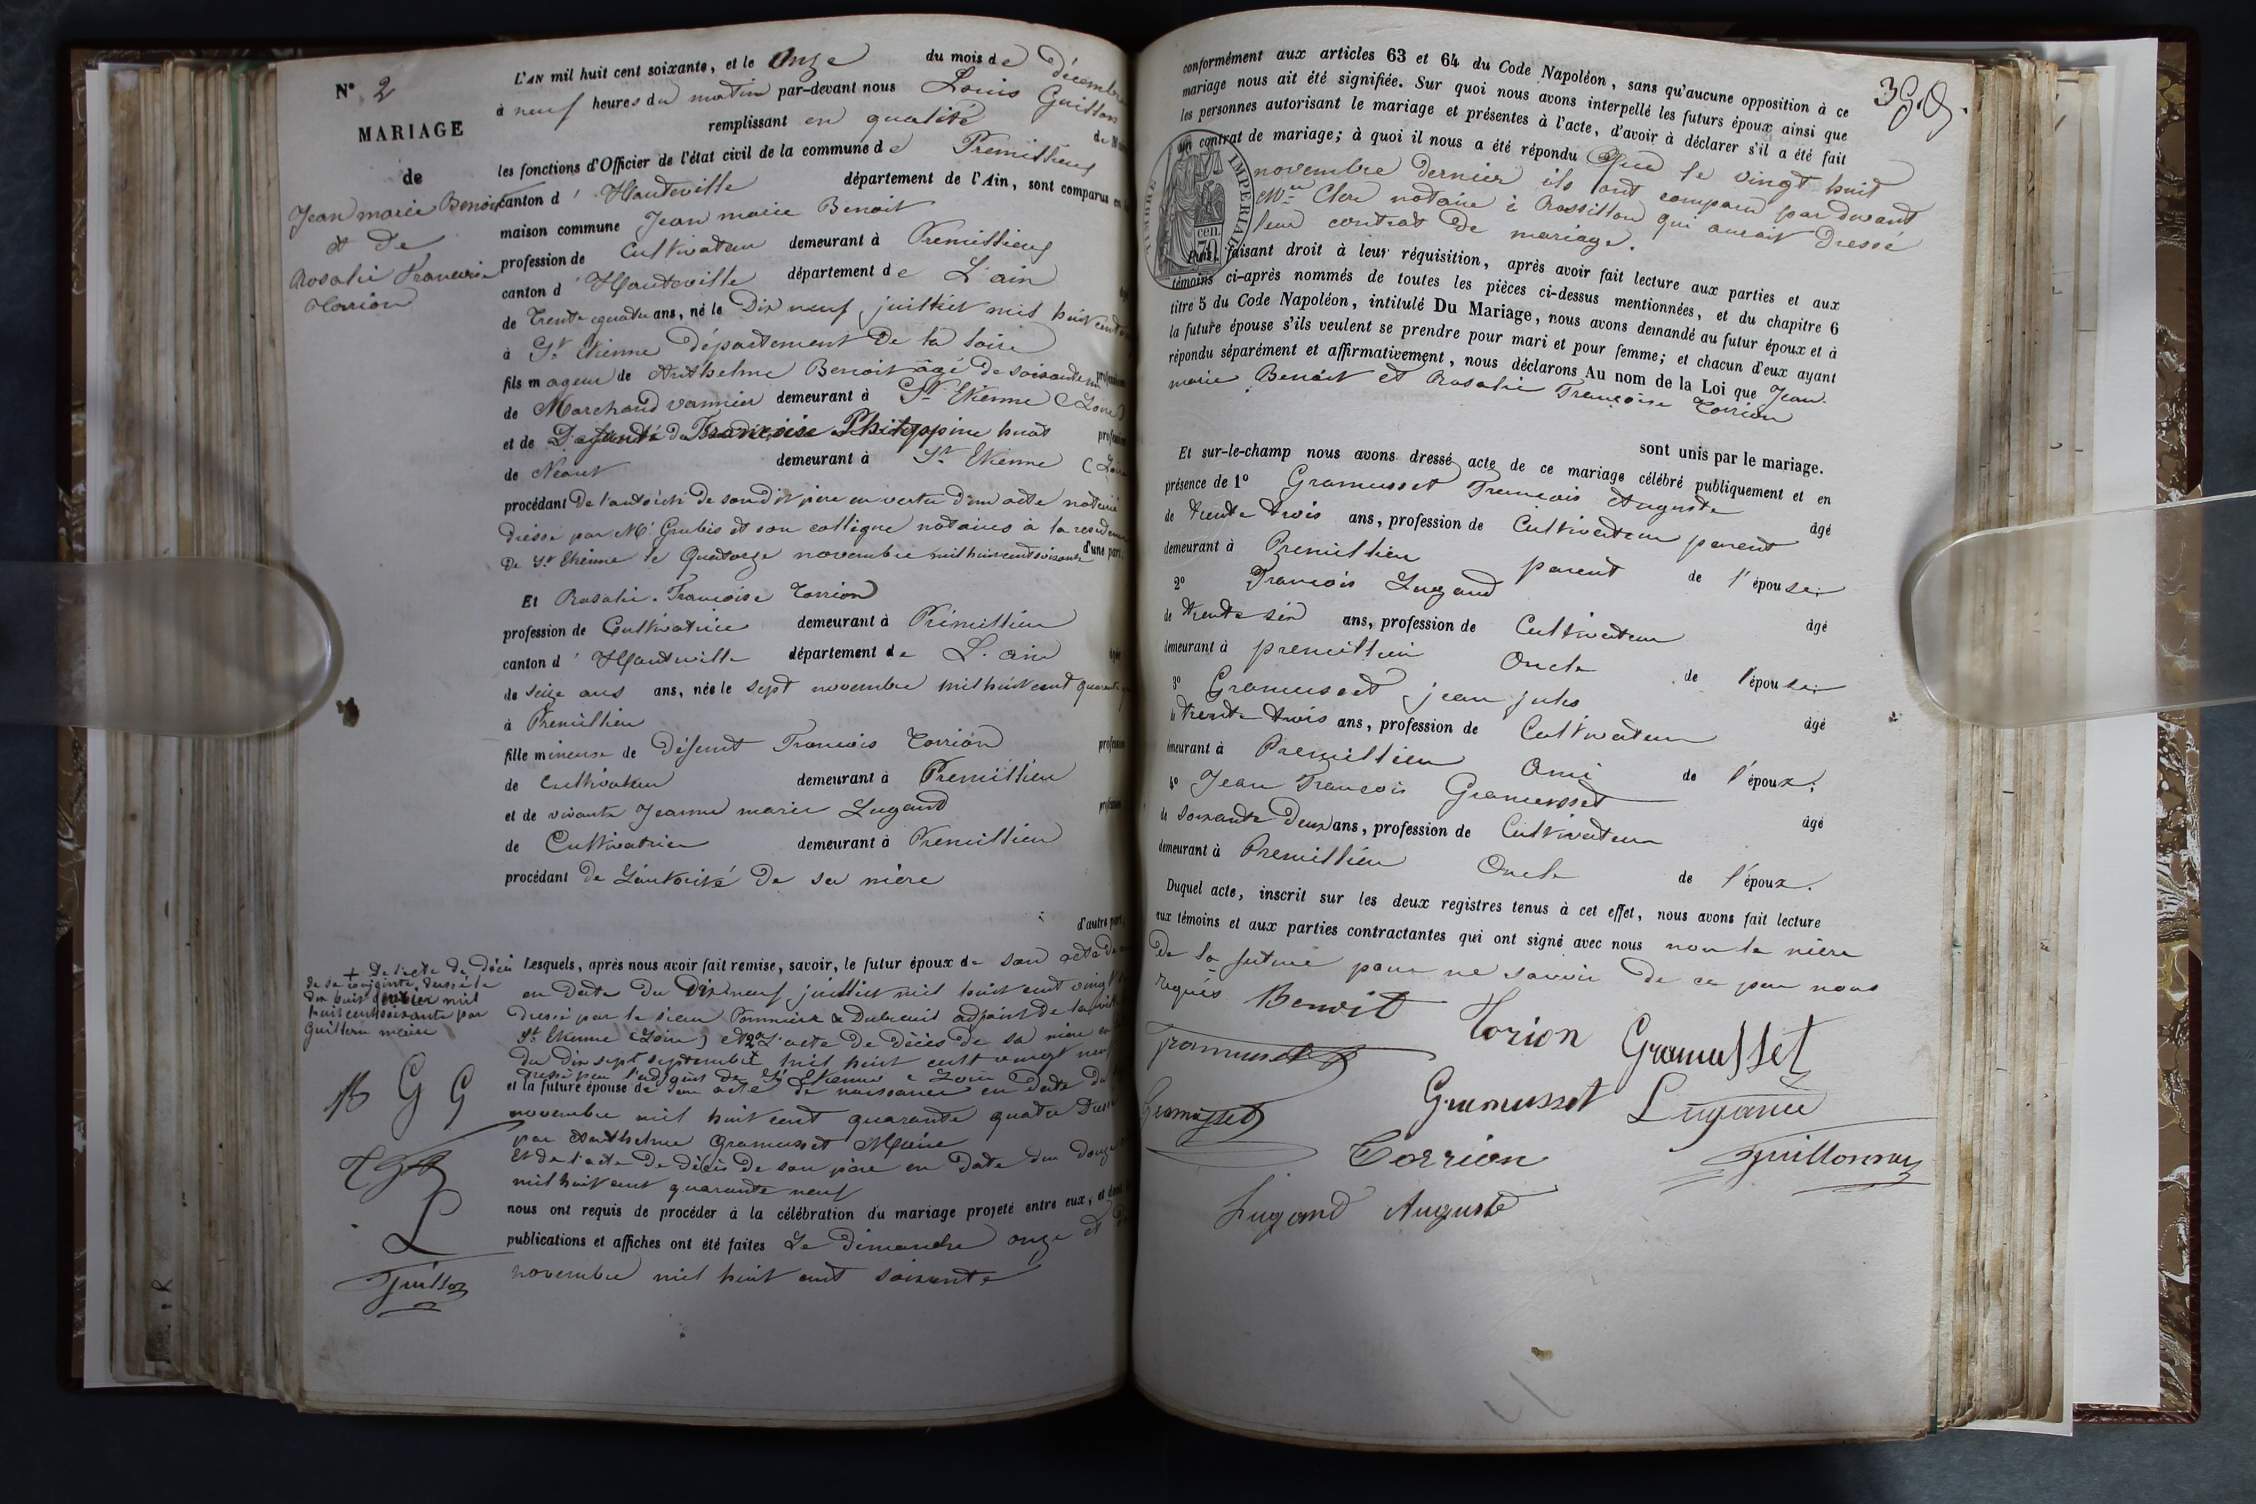 N° 2
MARIAGE
de
Jean marie Benoit
et de
Rosalie Francoise
Torrion
L'AN mil huit cent soixante, et le Onze du mois de décembre
à neuf heures du matin par-devant nous Louis Guillon
remplissant en qualité de
les fonctions d'Officier de l'état civil de la commune de Premillieu
canton d' Hauteville département de l'Ain, sont comparus en
maison commune Jean marie Benoit
profession de Cultivateur demeurant à Premillieu
canton d' Hauteville département de L'ain
de Trente quatre ans, né le Dix neuf juillet mil huit cent
à St Etienne département De la Loire
fils mageur de Anthelme Benoit âgé de soixante
de Marchand vannier demeurant à St Etienne (Loire)
et de Défunte Françoise Philippine huat
de Néant demeurant à St Etienne
procédant De l'autorité de son dit père en vertu d'un acte notarié
dressé par Me Grubis et son collègue notaires à la residence
De St Etienne le Quatorze novembre mil huit cent soixante d'une part
Et Rosalie Françoise Torrion
profession de Cultivatrice demeurant à Prémillieu
canton d' Hauteville département de L'ain
de seize ans ans, née le sept novembre mil huit cent quarante
à Premillieu
fille mineure de Défunt François Torrion
de cultivateur demeurant à Premillieu
et de vivante Jeanne marie Lugand
de Cultivatrice demeurant à Premillieu
procédant de L'autorité De sa mère
d'autre part
+ De l'acte de décès
de sa conjointe dressé le
dix huit
mil
huit cent soixante par
Guillon maire
Lesquels, après nous avoir fait remise, savoir, le futur époux de son acte de
en date du Dix neuf juillet mil huit cent vingt
dressé par le sieur Dubreuil adjoint de la ville
St Etienne (Loire) et 2° L'acte De Décès De sa mère en
du dix sept septembre mil huit cent vingt neuf
dressé par l'adjoint de St Etienne Loire
et la future épouse de son acte de naissance en date du
novembre mil huit cent quarante quatre
par Anthelme Gramusset Maire
Et de l'acte De décès De son père en Date du douze
mil huit cent quarante neuf
nous ont requis de procéder à la célébration du mariage projeté entre eux, et dont
publications et affiches ont été faites Le dimanche onze et
novembre mil huit cent soixante
G G
L
Guillon
389.
conformément aux articles 63 et 64 du Code Napoléon, sans qu'aucune opposition à ce
mariage nous ait été signifiée. Sur quoi nous avons interpellé les futurs époux ainsi que
les personnes autorisant le mariage et présentes à l'acte, d'avoir à déclarer s'il a été fait
un contrat de mariage; à quoi il nous a été répondu Que le vingt huit
novembre dernier ils ont comparu par devant
Me Clerc notaire à Rossillon qui aurait Dressé
leur contrat de mariage.
TIMBRE IMPERIAL
70 cen.
Puis, faisant droit à leur réquisition, après avoir fait lecture aux parties et aux
témoins ci-après nommés de toutes les pièces ci-dessus mentionnées, et du chapitre 6
titre 5 du Code Napoléon, intitulé Du Mariage, nous avons demandé au futur époux et à
la future épouse s'ils veulent se prendre pour mari et pour femme; et chacun d'eux ayant
répondu séparément et affirmativement, nous déclarons Au nom de la Loi que Jean
marie Benoit et Rosalie Françoise Torrion
sont unis par le mariage.
Et sur-le-champ nous avons dressé acte de ce mariage célébré publiquement et en
présence de 1° Gramusset François Auguste âgé
de trente trois ans, profession de Cultivateur parent
demeurant à Premillieu parent de l'épouse
2° François Lugand âgé
de trente six ans, profession de Cultivateur
demeurant à premillieu Oncle de l'épouse
3° Gramusset jean jules âgé
de trente trois ans, profession de Cultivateur
demeurant à Premillieu Ami de l'époux.
4° Jean François Gramusset âgé
de soixante Deux ans, profession de Cultivateur
demeurant à Premillieu Oncle de l'époux.
Duquel acte, inscrit sur les deux registres tenus à cet effet, nous avons fait lecture
aux témoins et aux parties contractantes qui ont signé avec nous non la mère
de la future pour ne savoir de ce par nous
requis Benoit Torion Gramusset
Gramusset
Gramusset Gramusset Lugand
Torrion Guillon
Lugand Auguste